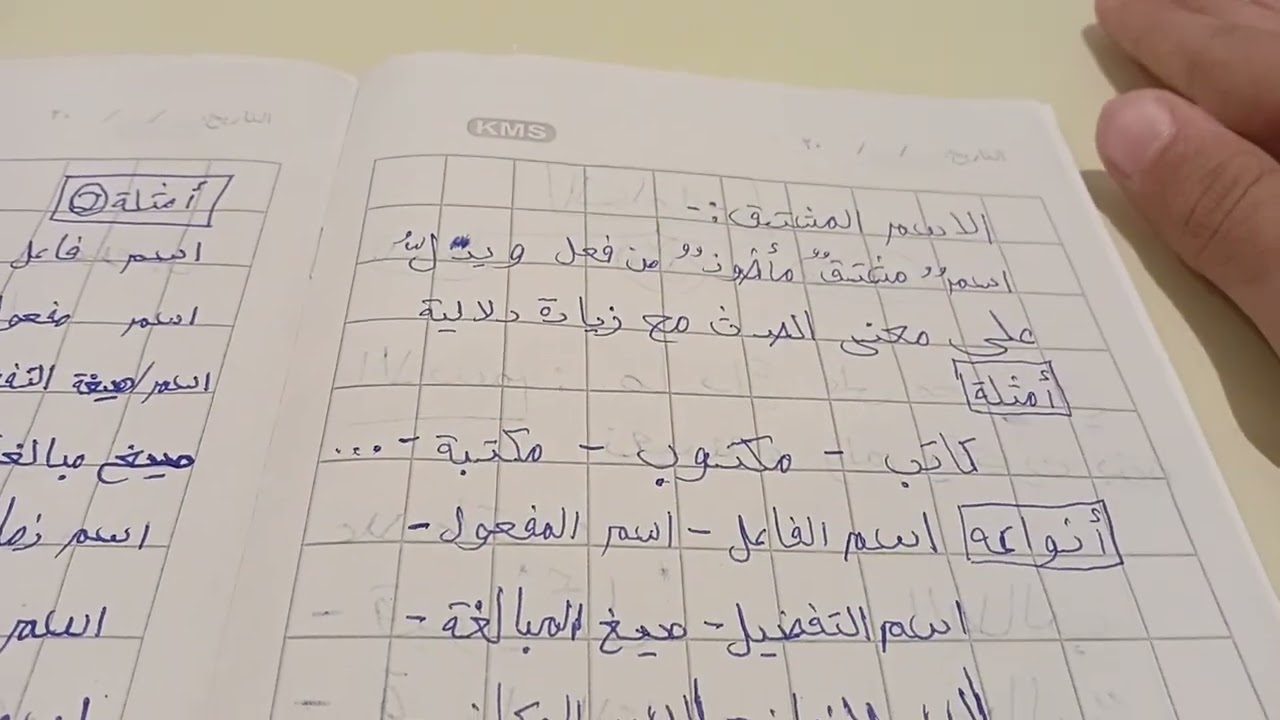 KMS
التاريخ: / / ٢٠
الاسم المشتق:-
اسم "مشتق" مأخوذ" من فعل ويدلُّ
على معنى الحدث مع زيادة دلالية
أمثلة
كاتب - مكتوب - مكتبة - ...
أنواعه اسم الفاعل - اسم المفعول -
اسم التفضيل - صيغ المبالغة -
التاريخ: / / ٢٠
أمثلة
اسم فاعل
اسم
اسم/صيغة
صيغ
اسم
اسم